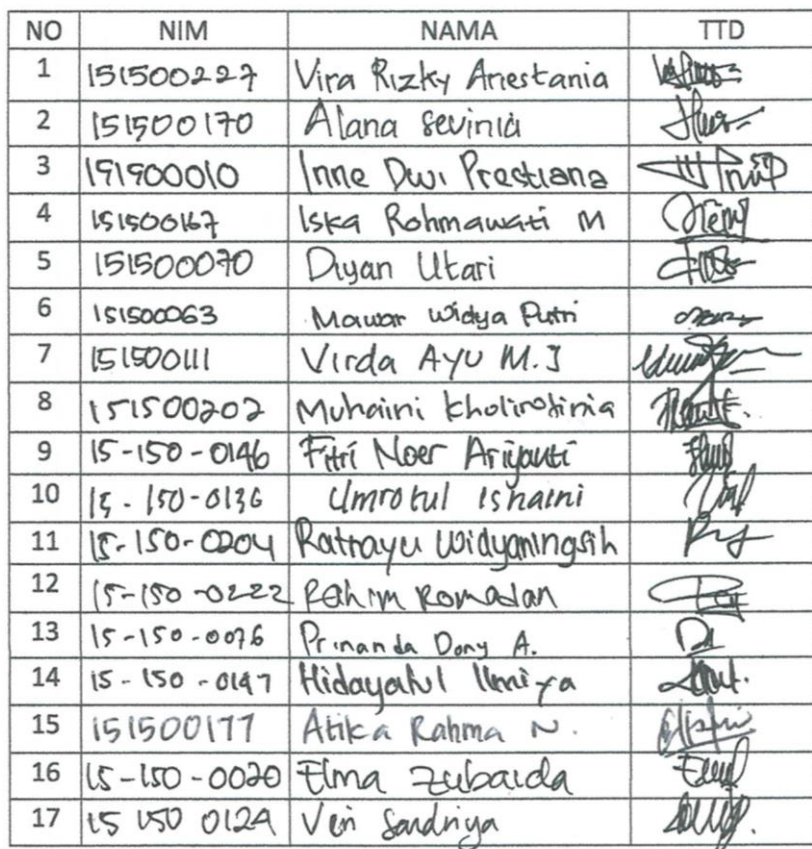 NO NIM NAMA TTD
1 151500227 Vira Rizky Anestania
2 151500170 Alana Sevinia
3 191900010 Inne Dwi Prestiana
4 151500167 Iska Rohmawati M
5 151500070 Diyan Utari
6 151500063 Mawar Widya Putri
7 151500111 Virda Ayu M.J
8 151500202 Muhaini
9 15-150-0146 Fitri Noer Ariyanti
10 15-150-0136 Umrotul Ishaini
11 15-150-0204 Ratrayu Widyaningsih
12 15-150-0222 Rahim Romadan
13 15-150-0076 Prinanda Dony A.
14 15-150-0147 Hidayatul Ilmiya
15 151500177 Atika Rahma N.
16 15-150-0020 Elma Zubaida
17 15 150 0124 Sandriya